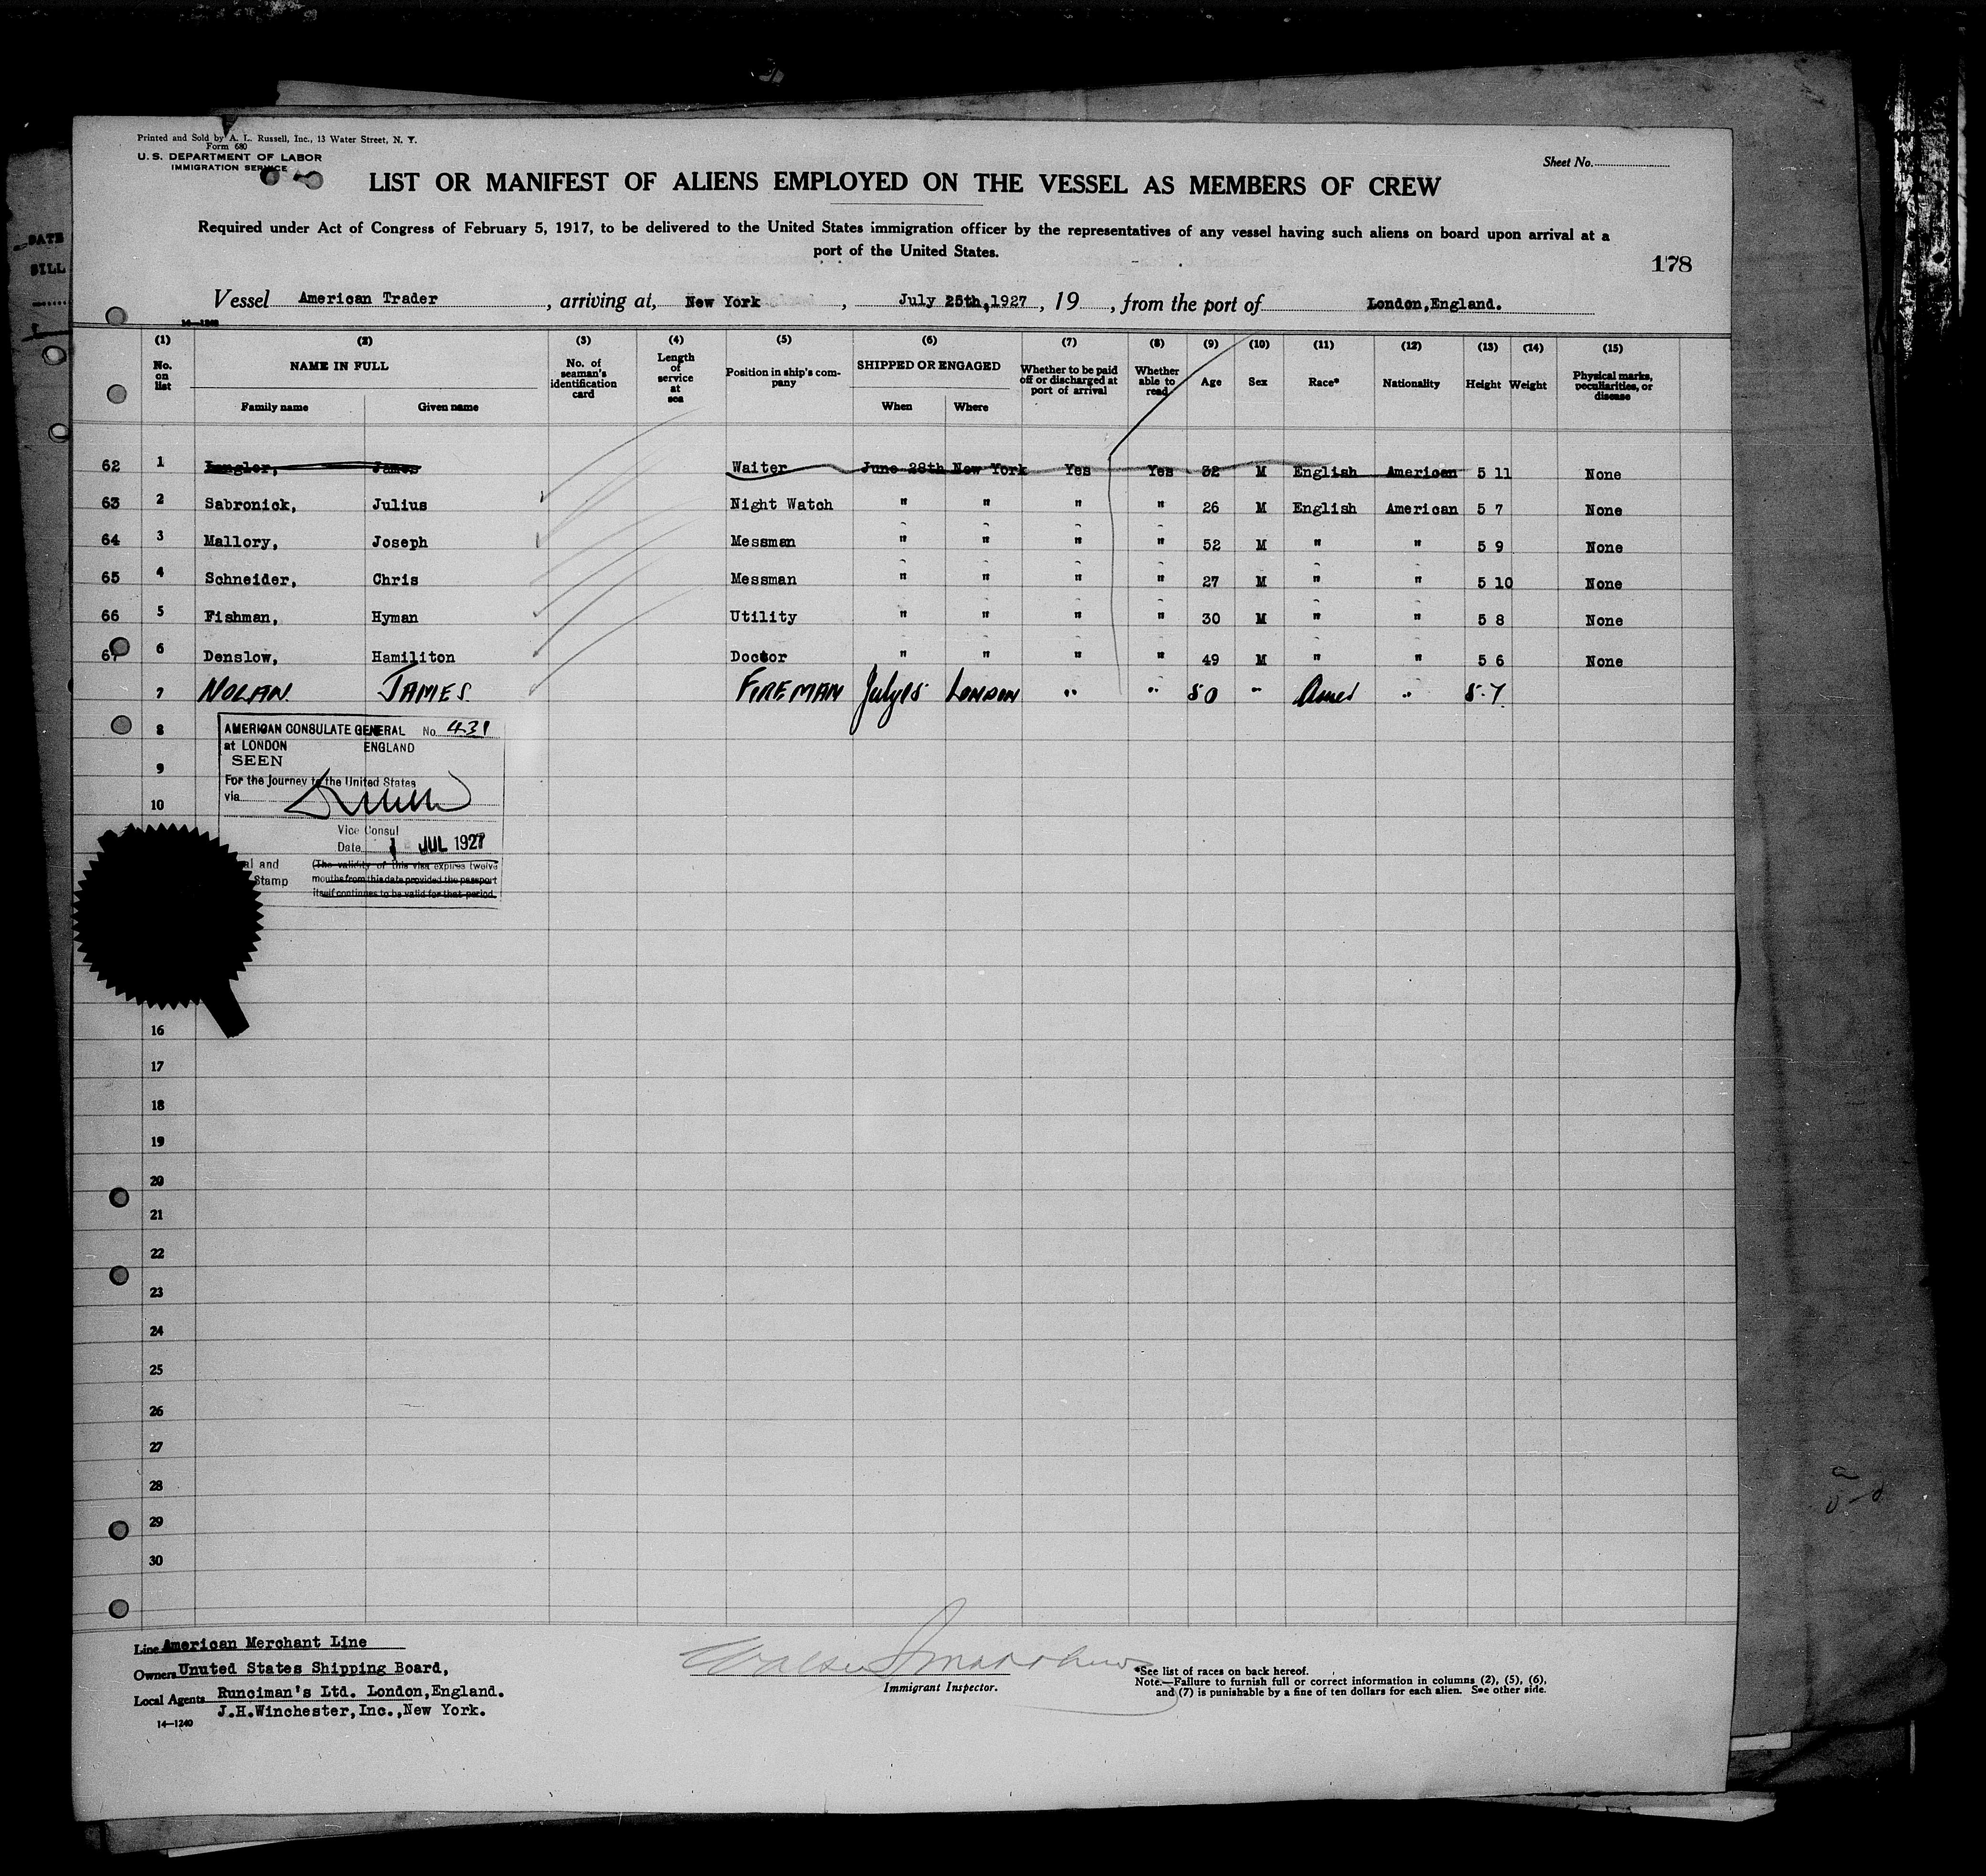 Printed and Sold by A. L. Russell, Inc., 13 Water Street, N. Y.
Form 680
U. S. DEPARTMENT OF LABOR
IMMIGRATION SERVICE
Sheet No.
LIST OR MANIFEST OF ALIENS EMPLOYED ON THE VESSEL AS MEMBERS OF CREW
Required under Act of Congress of February 5, 1917, to be delivered to the United States immigration officer by the representatives of any vessel having such aliens on board upon arrival at a
port of the United States.
178
Vessel American Trader, arriving at, New York, July 25th,1927, 19, from the port of London,England.
14-1240
(1) (2) (3) (4) (5) (6) (7) (8) (9) (10) (11) (12) (13) (14) (15)
No. on list NAME IN FULL Family name Given name No. of seaman's identification card Length of service at sea Position in ship's company SHIPPED OR ENGAGED When Where Whether to be paid off or discharged at port of arrival Whether able to read Age Sex Race* Nationality Height Weight Physical marks, peculiarities, or disease
62 1 Langler, James Waiter June 28th New York Yes Yes 32 M English American 5 11 None
63 2 Sabronick, Julius Night Watch " " " " 26 M English American 5 7 None
64 3 Mallory, Joseph Messman " " " " 52 M " " 5 9 None
65 4 Schneider, Chris Messman " " " " 27 M " " 5 10 None
66 5 Fishman, Hyman Utility " " " " 30 M " " 5 8 None
67 6 Denslow, Hamiliton Doctor " " " " 49 M " " 5 6 None
7 NOLAN. JAMES. FIREMAN July 15 LONDON " " 50 " Amer " 5-7
8
AMERICAN CONSULATE GENERAL No. 431
at LONDON ENGLAND
SEEN
9
For the journey to the United States
via
10
Vice Consul
Date JUL 1927
al and
Stamp
(The validity of this visa expires twelve
months from this date provided the passport
itself continues to be valid for that period.
16
17
18
19
20
21
22
23
24
25
26
27
28
29
30
Line American Merchant Line
Owners Unuted States Shipping Board,
Local Agents Runciman's Ltd. London,England.
J.H.Winchester,Inc.,New York.
14-1240
Immigrant Inspector.
*See list of races on back hereof.
Note.—Failure to furnish full or correct information in columns (2), (5), (6),
and (7) is punishable by a fine of ten dollars for each alien. See other side.